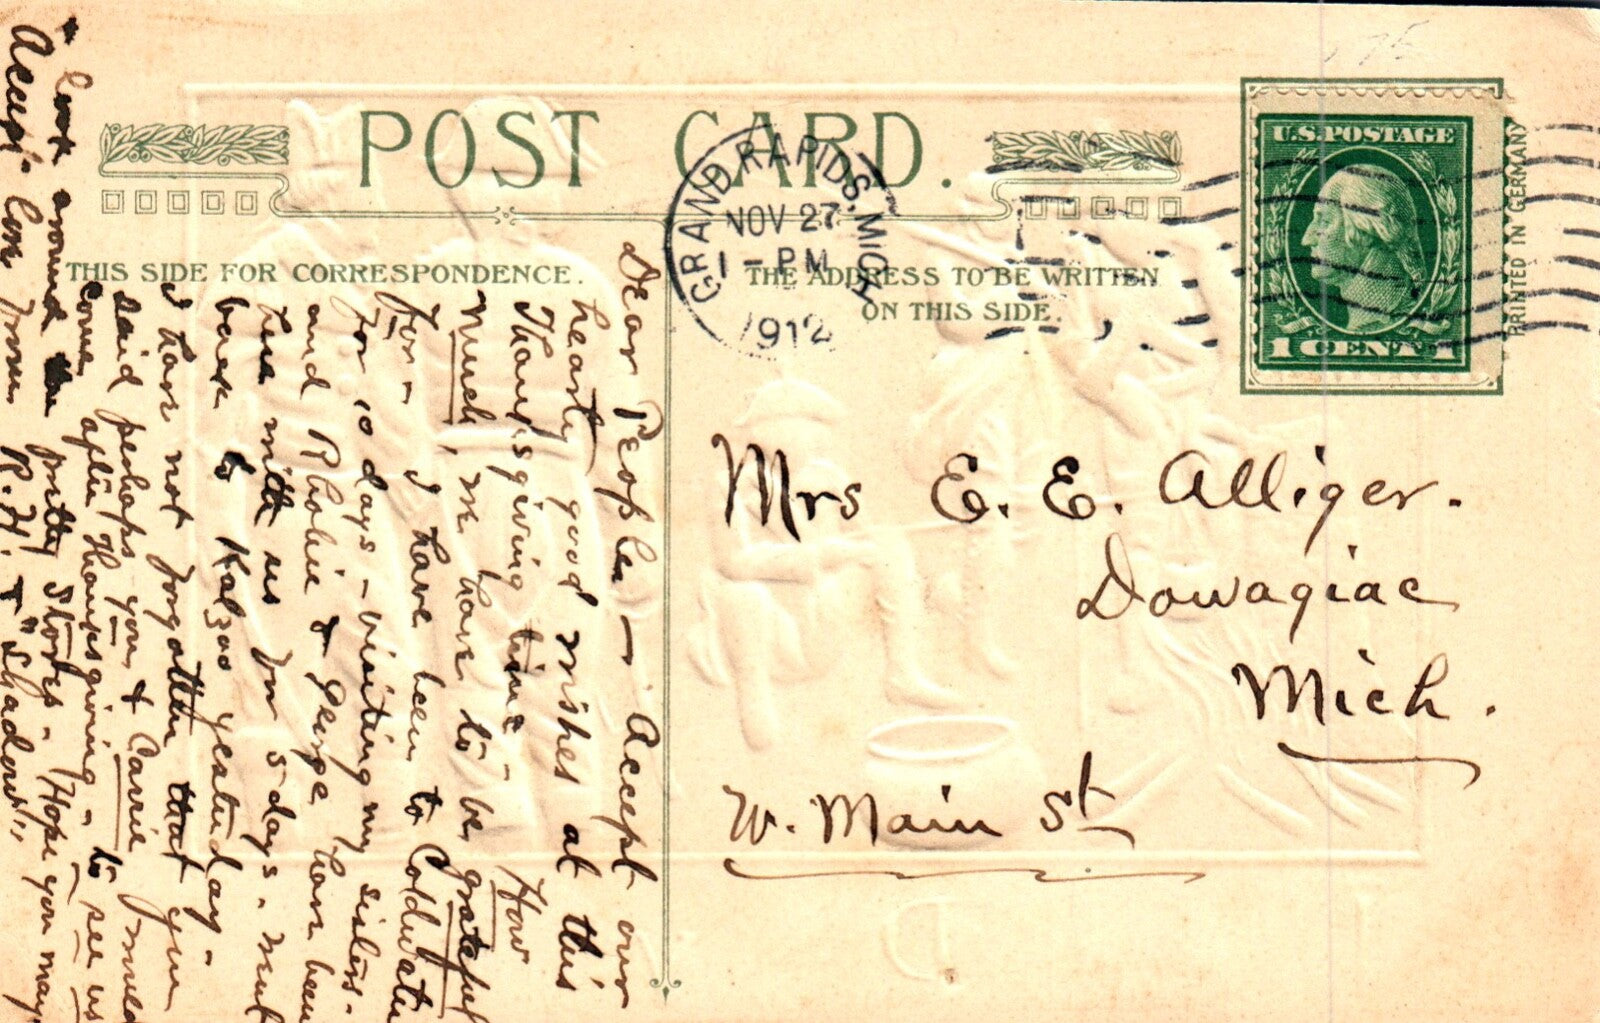 POST CARD.
THIS SIDE FOR CORRESPONDENCE.
THE ADDRESS TO BE WRITTEN
ON THIS SIDE.
GRAND RAPIDS, MICH
NOV 27
1 - PM
1912
U.S. POSTAGE
1 CENT 1
PRINTED IN GERMANY
Mrs E. E. Alliger.
Dowagiac
Mich.
W. Main St
Dear People — Accept our
hearty good wishes at this
Thanksgiving time - How
much, we have to be grateful
for - I have been to Coldwater
for 10 days - visiting my sisters.
and Rhobie & George have been
here with us for 5 days. Went
back to Kalzoo yesterday -
I have not forgotten that you
said perhaps you & Carrie, would
come after Thanksgiving - to see us
"look around the pretty Stores - Hope you may
Accep" Love from R. H. & "Shadow"